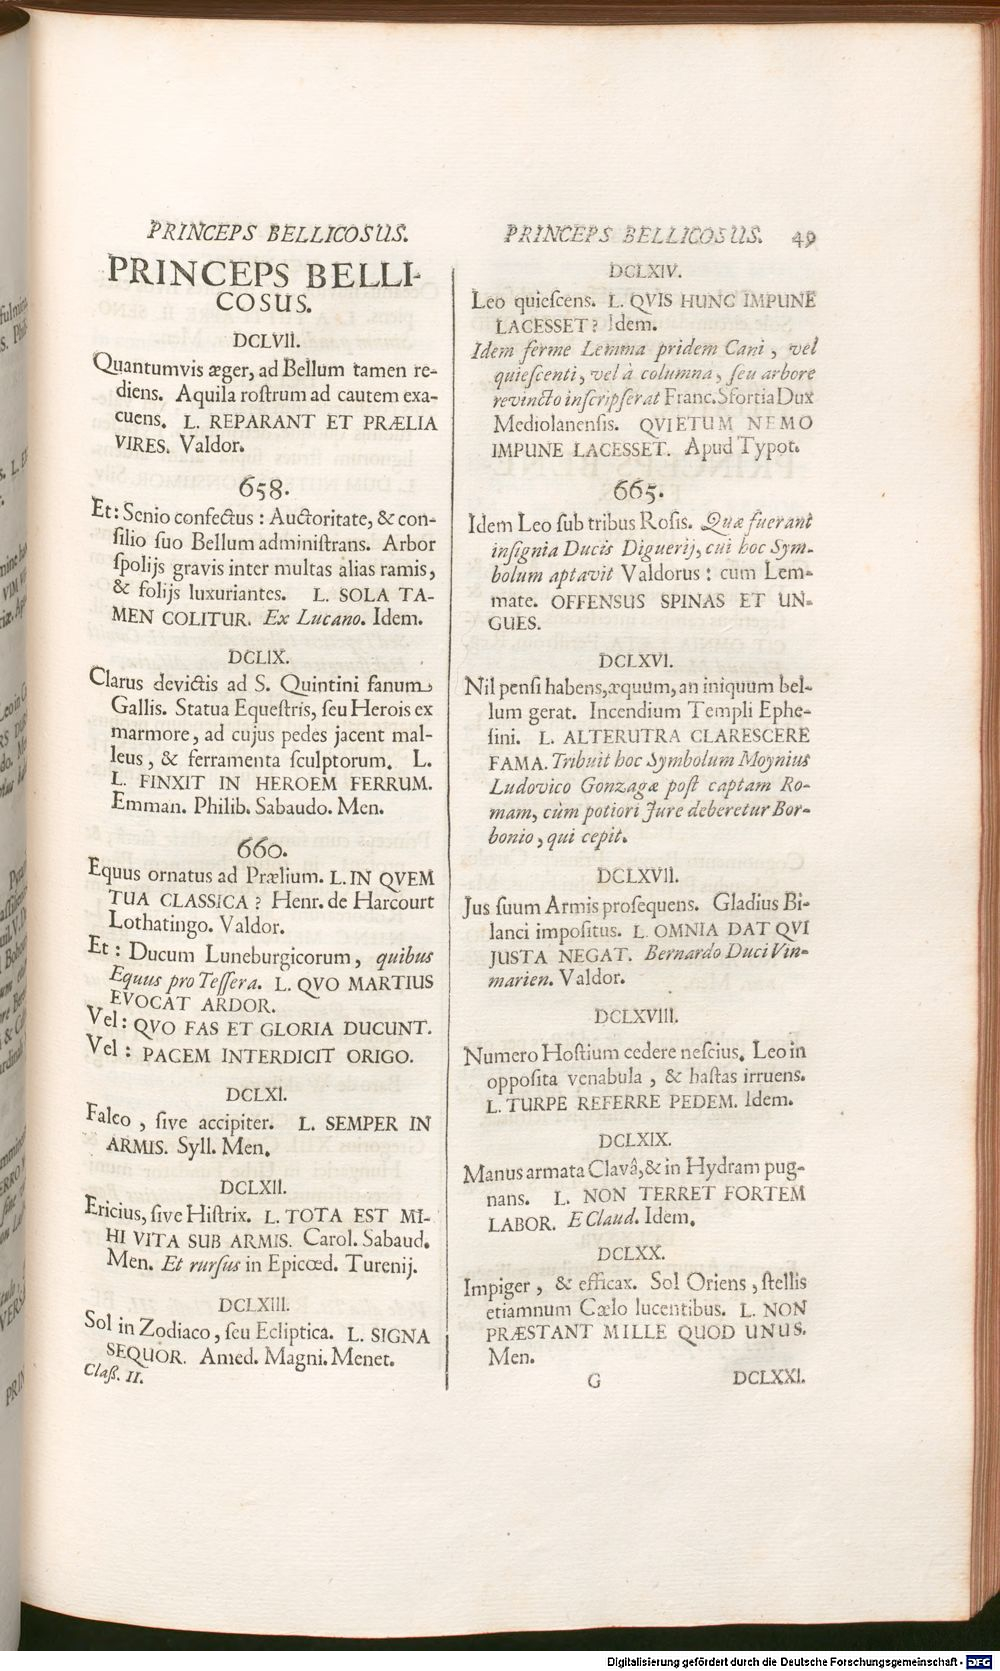 PRINCEPS BELLICOSUS.
PRINCEPS BELLI-
COSUS.
DCLVII.
Quantumvis æger, ad Bellum tamen re-
diens. Aquila roſtrum ad cautem exa-
cuens. L. REPARANT ET PRÆLIA
VIRES. Valdor.
658.
Et: Senio confectus: Auctoritate, & con-
ſilio ſuo Bellum adminiſtrans. Arbor
ſpolijs gravis inter multas alias ramis,
& folijs luxuriantes. L. SOLA TA-
MEN COLITUR. Ex Lucano. Idem.
DCLIX.
Clarus devictis ad S. Quintini fanum
Gallis. Statua Equeſtris, ſeu Herois ex
marmore, ad cujus pedes jacent mal-
leus, & ferramenta ſculptorum. L.
L. FINXIT IN HEROEM FERRUM.
Emman. Philib. Sabaudo. Men.
660.
Equus ornatus ad Prælium. L. IN QVEM
TUA CLASSICA? Henr. de Harcourt
Lothatingo. Valdor.
Et: Ducum Luneburgicorum, quibus
Equus pro Teſſera. L. QVO MARTIUS
EVOCAT ARDOR.
Vel: QVO FAS ET GLORIA DUCUNT.
Vel: PACEM INTERDICIT ORIGO.
DCLXI.
Falco, ſive accipiter. L. SEMPER IN
ARMIS. Syll. Men.
DCLXII.
Ericius, ſive Hiſtrix. L. TOTA EST MI-
HI VITA SUB ARMIS. Carol. Sabaud.
Men. Et rurſus in Epicœd. Turenij.
DCLXIII.
Sol in Zodiaco, ſeu Ecliptica. L. SIGNA
SEQUOR. Amed. Magni. Menet.
Claß. II.
PRINCEPS BELLICOSUS. 49
DCLXIV.
Leo quieſcens. L. QVIS HUNC IMPUNE
LACESSET? Idem.
Idem ferme Lemma pridem Cani, vel
quieſcenti, vel à columna, ſeu arbore
revincto inſcripſerat Franc. Sfortia Dux
Mediolanenſis. QVIETUM NEMO
IMPUNE LACESSET. Apud Typot.
665.
Idem Leo ſub tribus Roſis. Quæ fuerant
inſignia Ducis Diguerij, cui hoc Sym-
bolum aptavit Valdorus: cum Lem-
mate. OFFENSUS SPINAS ET UN-
GUES.
DCLXVI.
Nil penſi habens, æquum, an iniquum bel-
lum gerat. Incendium Templi Ephe-
ſini. L. ALTERUTRA CLARESCERE
FAMA. Tribuit hoc Symbolum Moynius
Ludovico Gonzagæ poſt captam Ro-
mam, cùm potiori Jure deberetur Bor-
bonio, qui cepit.
DCLXVII.
Jus ſuum Armis proſequens. Gladius Bi-
lanci impoſitus. L. OMNIA DAT QVI
JUSTA NEGAT. Bernardo Duci Vin-
marien. Valdor.
DCLXVIII.
Numero Hoſtium cedere neſcius. Leo in
oppoſita venabula, & haſtas irruens.
L. TURPE REFERRE PEDEM. Idem.
DCLXIX.
Manus armata Clavâ, & in Hydram pug-
nans. L. NON TERRET FORTEM
LABOR. E Claud. Idem.
DCLXX.
Impiger, & efficax. Sol Oriens, ſtellis
etiamnum Cælo lucentibus. L. NON
PRÆSTANT MILLE QUOD UNUS.
Men.
G DCLXXI.
Digitalisierung gefördert durch die Deutsche Forschungsgemeinschaft - DFG